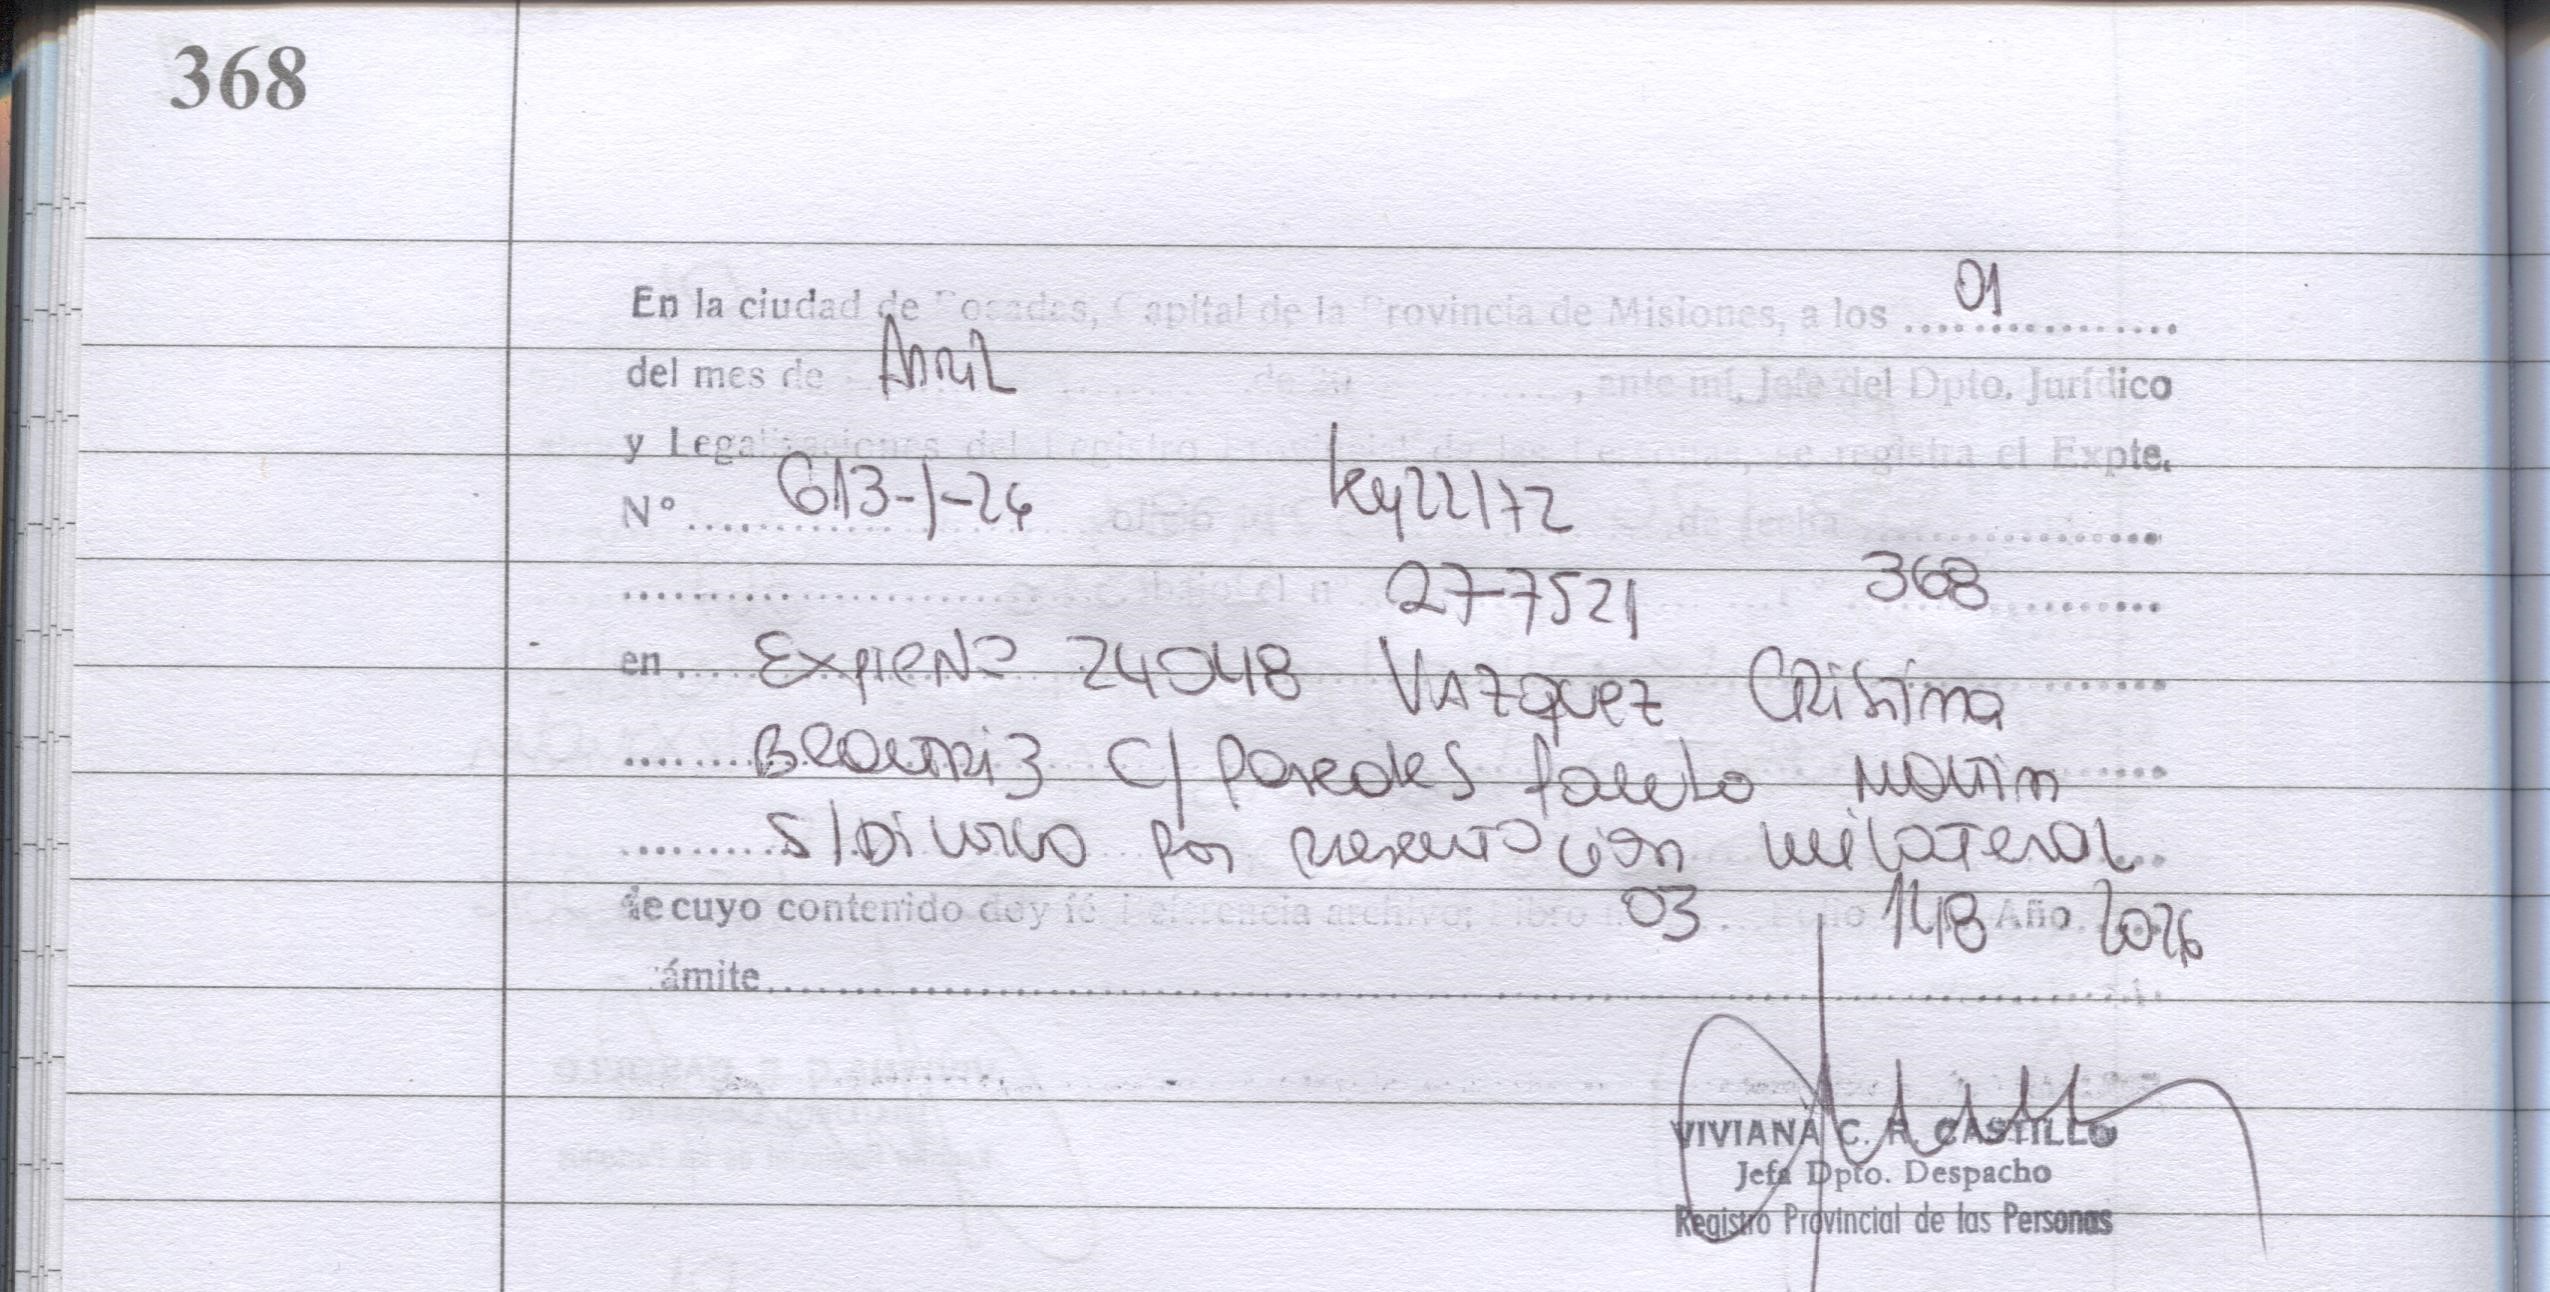 368
En la ciudad de Posadas, Capital de la Provincia de Misiones, a los 01
del mes de Abril de 20 , ante mí, Jefe del Dpto. Jurídico
y Legalizaciones del Registro Provincial de las Personas, se registra el Expte.
N° 613-J-26 de fecha
27-7521 368
en Expte N° 24048 Vazquez Cristina
Beatriz C/ Paredes Martin
S/Divorcio por presentacion unilateral
de cuyo contenido doy fé. Referencia archivo: Libro 03 Folio 148 Año 2026
ámite
VIVIANA C. R. CASTILLO
Jefa Dpto. Despacho
Registro Provincial de las Personas